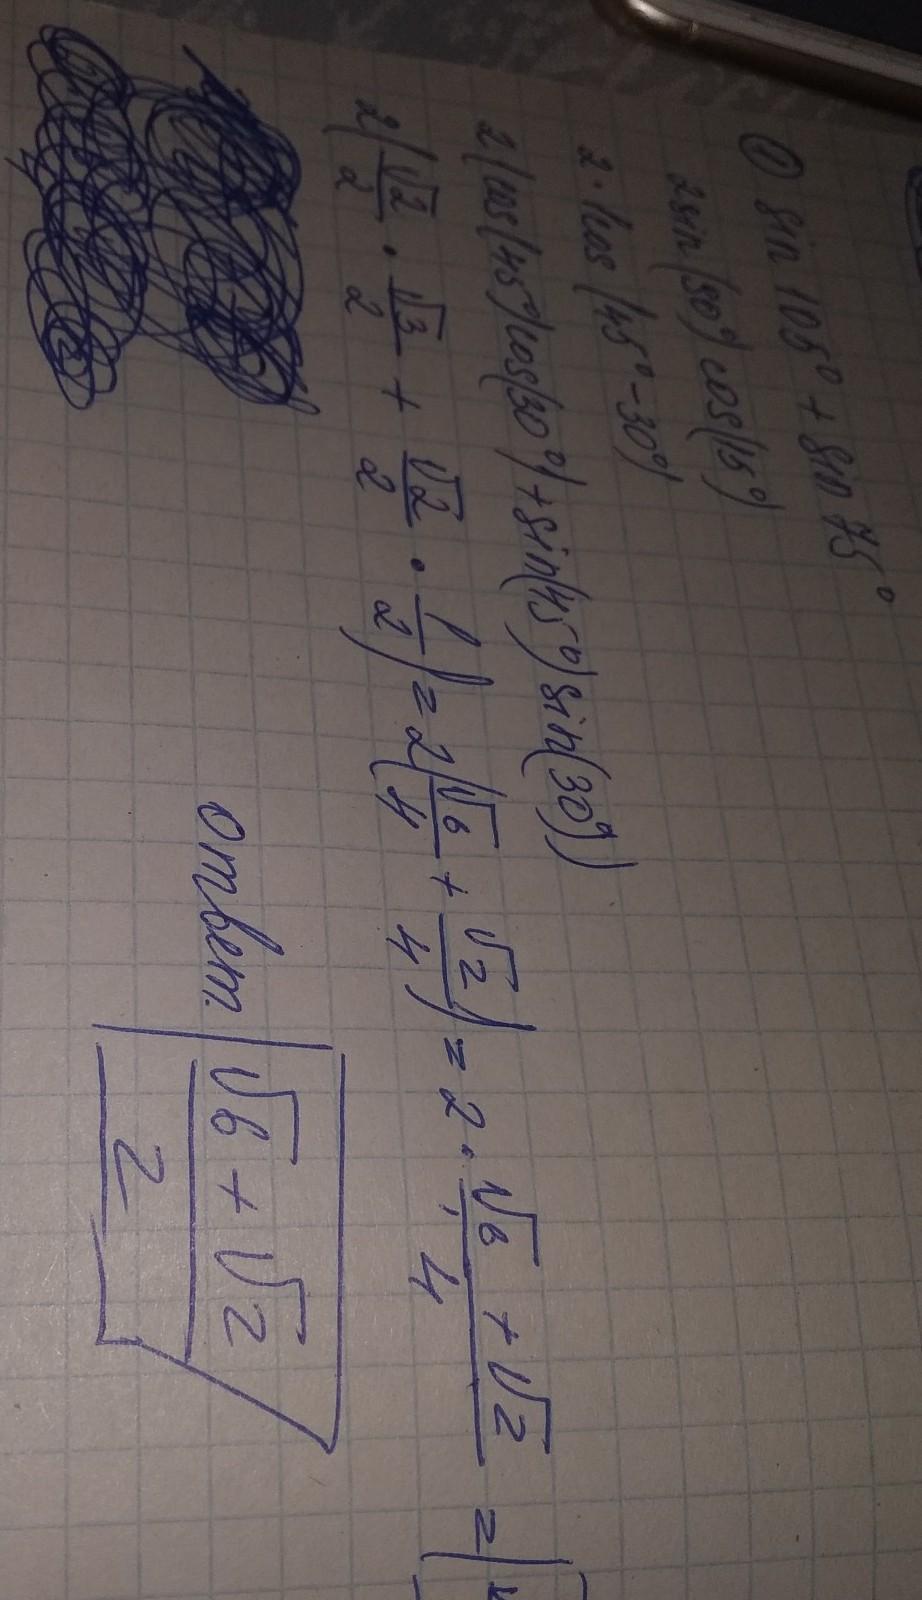 ① sin 105° + sin 75°
2sin (90°) cos(15°)
2 · cos (45° - 30°)
2 (cos(45°)cos(30°) + sin(45°) sin(30°))
2(√2/2 · √3/2 + √2/2 · 1/2) = 2(√6/4 + √2/4) = 2 · (√6 + √2)/4 =
ответ (√6 + √2)/2